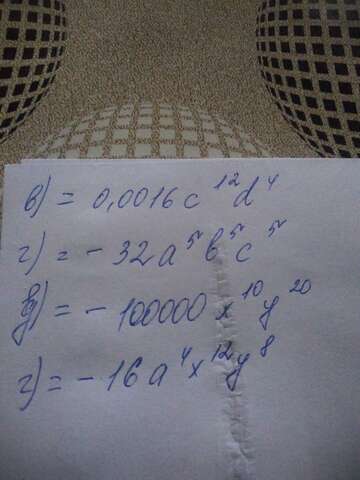 в) = 0,0016 c¹²d⁴
г) = - 32a⁵b⁵c⁵
в) = - 100000 x¹⁰y²⁰
г) = - 16a⁴x¹²y⁸